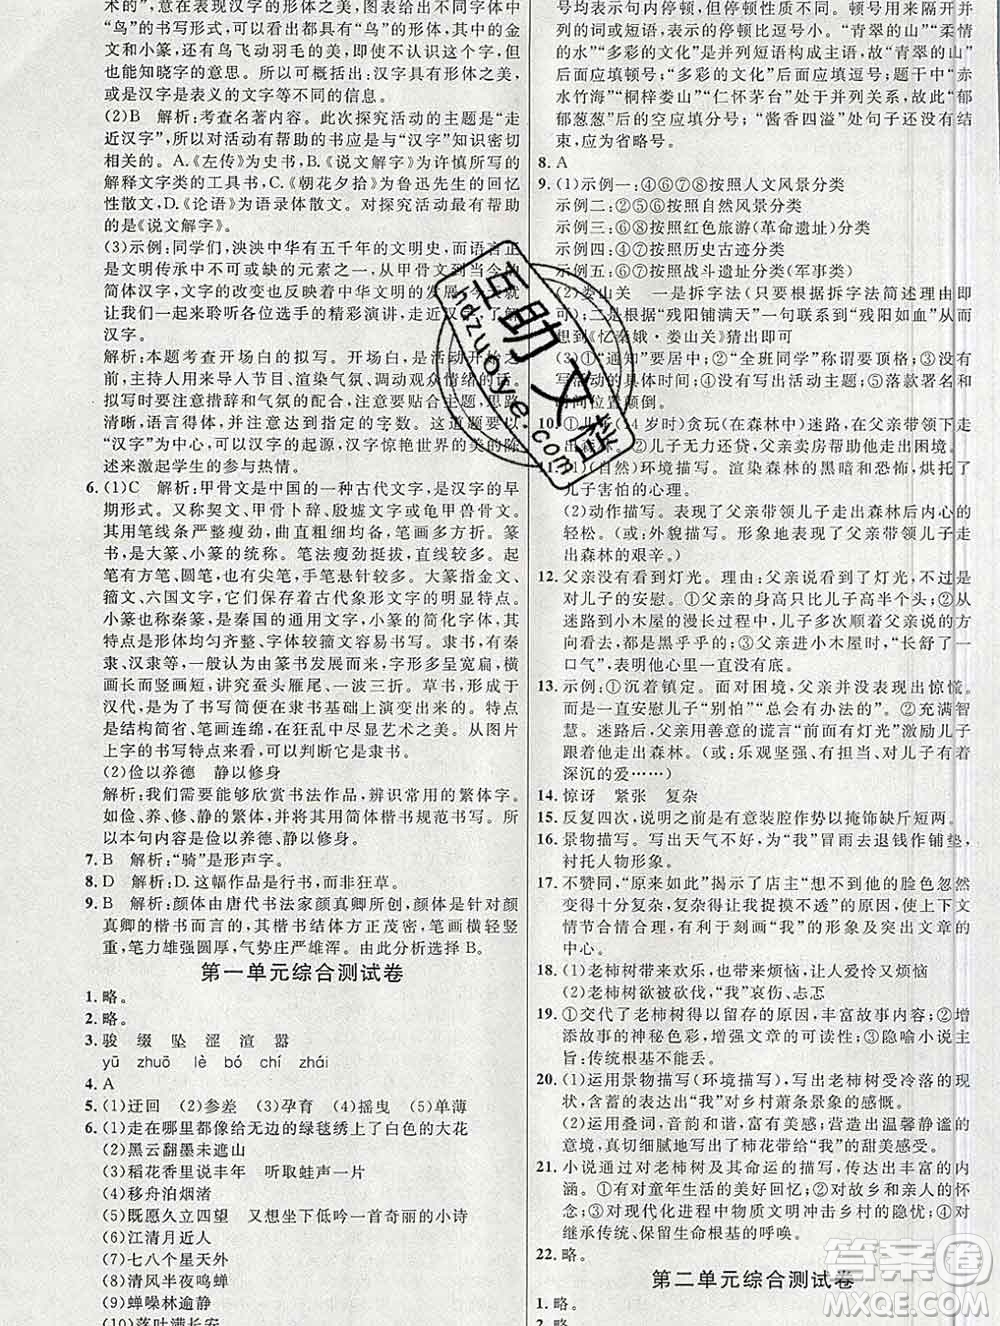 术的”,意在表现汉字的形体之美。图表给出不同字体中
“鸟”的书写形式,可以看出都有鸟的形体之美,尤其是金
文和小篆,鸟飞动羽毛的美,即使不认识这个字,也能大
概知晓字的意思。我们可以概括出:汉字具有形体之美,
或是汉字是表义的文字等不同的信息。
(2)B 解析:考查名著内容。此次探究活动的主题是“走
近汉字”,所以对活动有帮助的书应是与“汉字”知识密切
相关的。A.《左传》为史书,B.《说文解字》为许慎所写的
解释文字类的工具书,C.《朝花夕拾》为鲁迅先生的回忆
性散文,D.《论语》为语录体散文。对探究活动最有帮助
的是《说文解字》。
(3)示例:同学们,泱泱中华有五千年的文明史,而语言正
是文明传承中不可或缺的元素之一,从甲骨文到当今的
简体汉字,文字的改变也反映着中华文明的发展,今天就
让我们一起来聆听各位选手的精彩演讲,走近汉字,了解
汉字。
解析:本题考查开场白的拟写。开场白,是活动开始之
前,主持人用来导入节目、渲染气氛、调动观众情绪的话。
拟写时要注意措辞和气氛的配合,注意要贴合主题,思路
清晰,语言得体,并且要达到指定的字数。这道题要以
“汉字”为中心,可以汉字的起源,汉字惊艳世界的美的陈
述来激起学生的参与热情。
6.(1)C 解析:甲骨文是中国的一种古代文字,是汉字的早
期形式。又称契文、甲骨卜辞、殷墟文字或龟甲兽骨文。
其用笔线条严整瘦劲,曲直粗细均备,笔画多方折。篆
书,是大篆、小篆的统称。笔法瘦劲挺拔,直线较多。起
笔有方笔、圆笔,也有尖笔,手笔悬针较多。大篆指金文、
籀文、六国文字,它们保存着古代象形文字的明显特点。
小篆也称秦篆,是秦国的通用文字,小篆的简化字体,其
特点是形体均匀齐整、字体较籀文容易书写。隶书,有秦
隶、汉隶等,一般认为由篆书发展而来,字形多呈宽扁,横
画长而竖画短,讲究蚕头雁尾、一波三折。草书,形成于
汉代,是为了书写简便在隶书基础上演变出来的。特点
是结构简省、笔画连绵,在狂乱中尽显艺术之美。从图片
上字的书写特点,我们可以判断它是隶书。
(2)俭以养德 静以修身
解析:我们需要能够欣赏书法作品,辨识常用的繁体字。
如俭、养、修、静的繁体,并且能够用简体楷书规范书写。
所以本句内容是俭以养德、静以修身。
7.B 解析:“骑”是形声字。
8.D 解析:D.这幅作品是行书,而非狂草。
9.B 解析:颜体由唐代书法家颜真卿所创,颜体是针对颜
真卿的楷书而言的,其楷书结体方正茂密,笔画横轻竖
重,笔力雄强圆厚,气势庄严雄浑。由此分析选择B。
第一单元综合测试卷
1.略。
2.略。
3.骏 缀 坠 涩 渲 嚣
yū zhuō lè bó chí zhái
4.A
5.(1)迂回 (2)参差 (3)孕育 (4)摇曳 (5)单薄
6.(1)走在哪里都像给无边的绿毯绣上了白色的大花
(2)黑云翻墨未遮山
(3)稻花香里说丰年 听取蛙声一片
(4)移舟泊烟渚
(5)既愿久立四望 又想坐下低吟一首奇丽的小诗
(6)江清月近人
(7)七八个星天外
(8)清风半夜鸣蝉
(9)蝉噪林逾静
(10)落叶满长安
号均表示句内停顿,但顿号的停顿比逗号小。顿号用来隔开并
列的词或短语,表示的停顿比逗号小。“青翠的山”“柔情
的水”“多彩的文化”是并列短语构成主语,故“青翠的山”后
填顿号;“多彩的文化”“美丽的贵州”后填逗号;题干中“赤
水竹海”“桐梓娄山”“仁怀茅台”处于并列关系,因此“郁
郁葱葱”后的空应填分号;“酱香四溢”处句子并没有
结束,应为省略号。
8.A
9.(1)示例一:④⑥⑦⑧按照人文风景分类
示例二:②⑤⑥按照自然风景分类
示例三:④⑦⑧按照红色旅游(革命遗址)分类
示例四:④⑥⑦按照历史古迹分类
示例五:⑥⑦⑧按照战斗遗址分类(军事类)
(2)娄山关 一是拆字法(只要根据拆字法简述理由即
可);二是根据“残阳铺满天”一句联系到“残阳如血”从而
想到《忆秦娥·娄山关》猜出即可
(3)①“通知”要居中;②“全班同学”称谓要顶格;③没有
写活动的具体时间;④没有写出活动主题;⑤落款署名和
时间位置颠倒。
10.①儿子(14岁时)贪玩(在森林中)迷路,父亲带领下走
走出森林;②儿子无力还贷,父亲卖房帮助他走出困境。
11.(1)(自然)环境描写。渲染森林的黑暗和恐怖,烘托了
儿子害怕的心理。
(2)动作描写。表现了父亲带领儿子走出森林后内心的
轻松。(或:外貌描写。形象地表现了父亲带领儿子走
出森林的艰辛。)
12.父亲没有看到灯光。理由:父亲说看到了灯光,仅仅是
对儿子的安慰。①父亲的身高只比儿子高半个头;②从
迷路到小木屋的漫长过程中,儿子多次顺着父亲指的方
向看,都是黑乎乎的;③父亲进小木屋时,“长舒了一
口气”,表明他心里一直是没有底的。
13.示例:①沉着镇定。面对困境,父亲并没表现出惊慌,
而是一直安慰儿子“别怕”“总会有办法的”。②充满智
慧。迷路后,父亲用善意的谎言“前面有灯光”激励儿子
跟着他走出森林。(或:乐观坚强、有担当、对儿子有着
深沉的爱……)
14.惊讶 紧张 复杂
15.反复四次,说明之前是有意装腔作势以掩饰缺斤短两。
16.景物描写。写出天气不好,为“我”冒雨去退钱作铺垫,
衬托人物形象。
17.不赞同,“原来如此”揭示了店主“想不到他的脸色忽然
变得十分复杂,复杂得让我捉摸不透”的原因,使上下文
情节合情合理,有利于刻画“我”的形象及突出文章的
中心。
18.(1)老柿树带来欢乐,也带来烦恼,让人爱怜又烦恼
(2)老柿树欲被砍伐,“我”哀伤、忐忑
19.①交代了老柿树得以留存的原因,丰富故事内容;②增
添故事的神秘色彩,增强文章的可读性;③隐喻小说主
旨:传统根基不能丢。
20.(1)运用景物描写(环境描写),写出老柿树受冷落的现
状,表达出“我”对乡村萧条景象的感慨。
(2)运用叠词,音韵和谐,富有美感;营造出温馨静谧的
意境,真切细腻地写出了柿花带给“我”的甜美感受。
21.小说通过对老柿树及其命运的描写,传达出丰富的内
涵。①有对童年生活的美好回忆;②有对故乡和亲人的怀
念;③对现代化进程中物质文明冲击乡村的隐忧;④对
继承传统、保留生命根基的呼唤。
22.略。
第二单元综合测试卷
1.略。
2.略。
互助文库
hdzuoye.com
答案圈
MXQE.COM